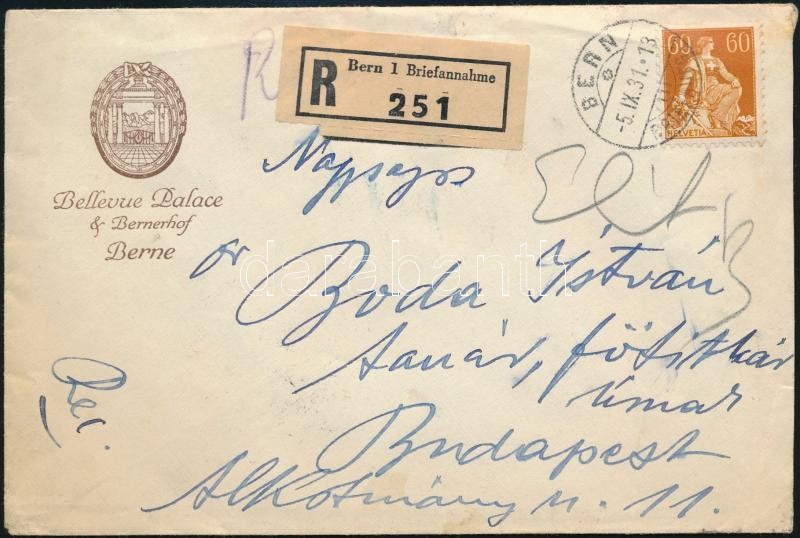 R
R Bern 1 Briefannahme
251
BERN
-5.IX.31.-13
60 60
HELVETIA
Bellevue Palace
& Bernerhof
Berne
Nagyságos
dr Boda István
tanár, főtitkár
úrnak
Budapest
Alkotmány u. 11.
Rec.
darabanth